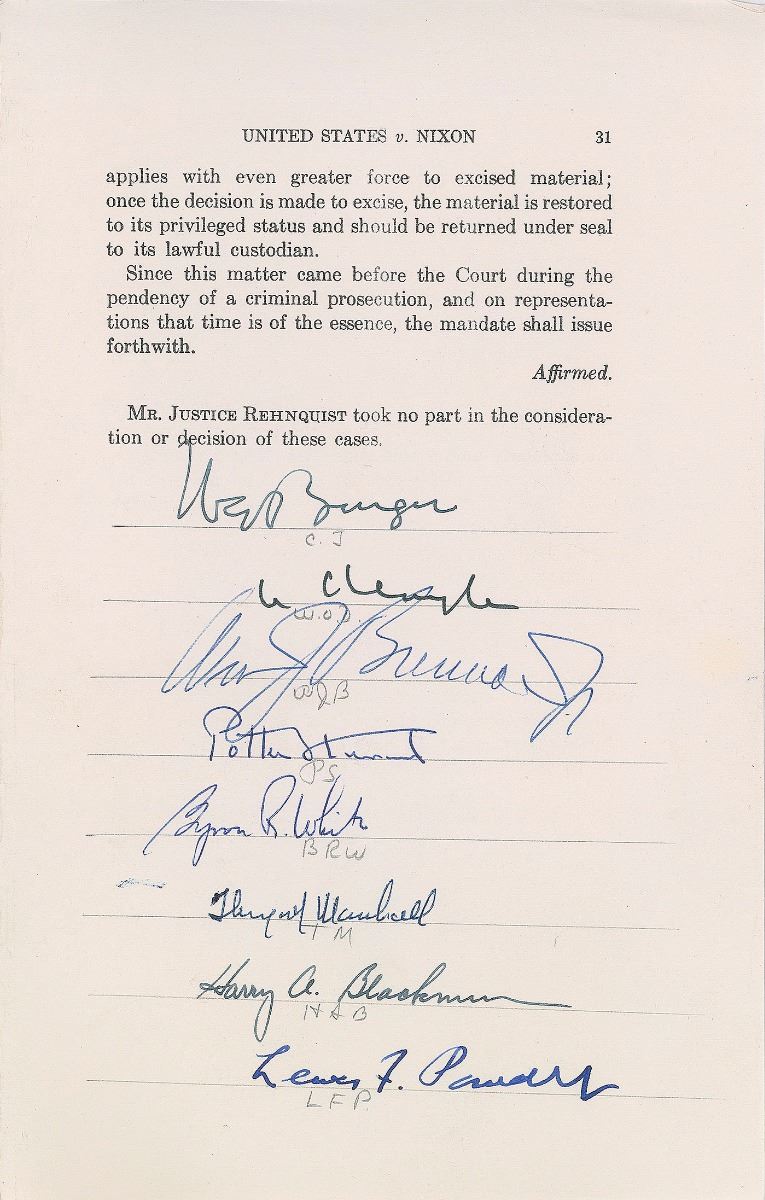 UNITED STATES v. NIXON 31
applies with even greater force to excised material;
once the decision is made to excise, the material is restored
to its privileged status and should be returned under seal
to its lawful custodian.
Since this matter came before the Court during the
pendency of a criminal prosecution, and on representa-
tions that time is of the essence, the mandate shall issue
forthwith.
Affirmed.
MR. JUSTICE REHNQUIST took no part in the considera-
tion or decision of these cases.
Burger
C. J
W.O.D.
Wm J Brennan Jr
WJB
Potter Stewart
PS
Byron R. White
BRW
Thurgood Marshall
TM
Harry A. Blackmun
HAB
Lewis F. Powell Jr
LFP